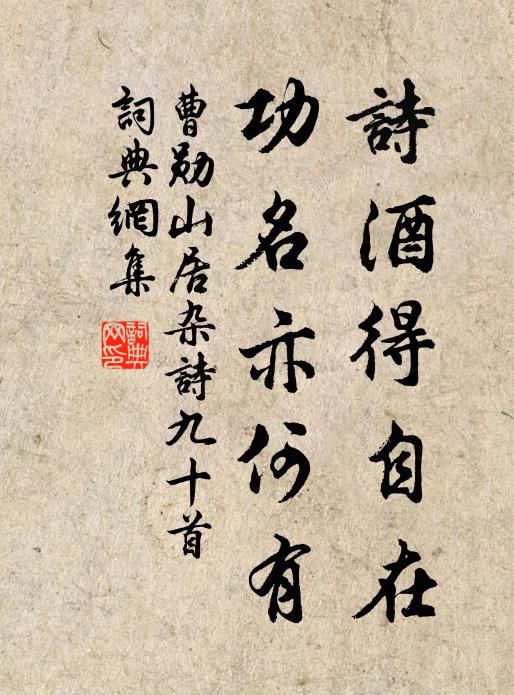 詩酒得自在
功名亦何有
曹勛山居杂詩九十首
詞典網集
詞典
网印